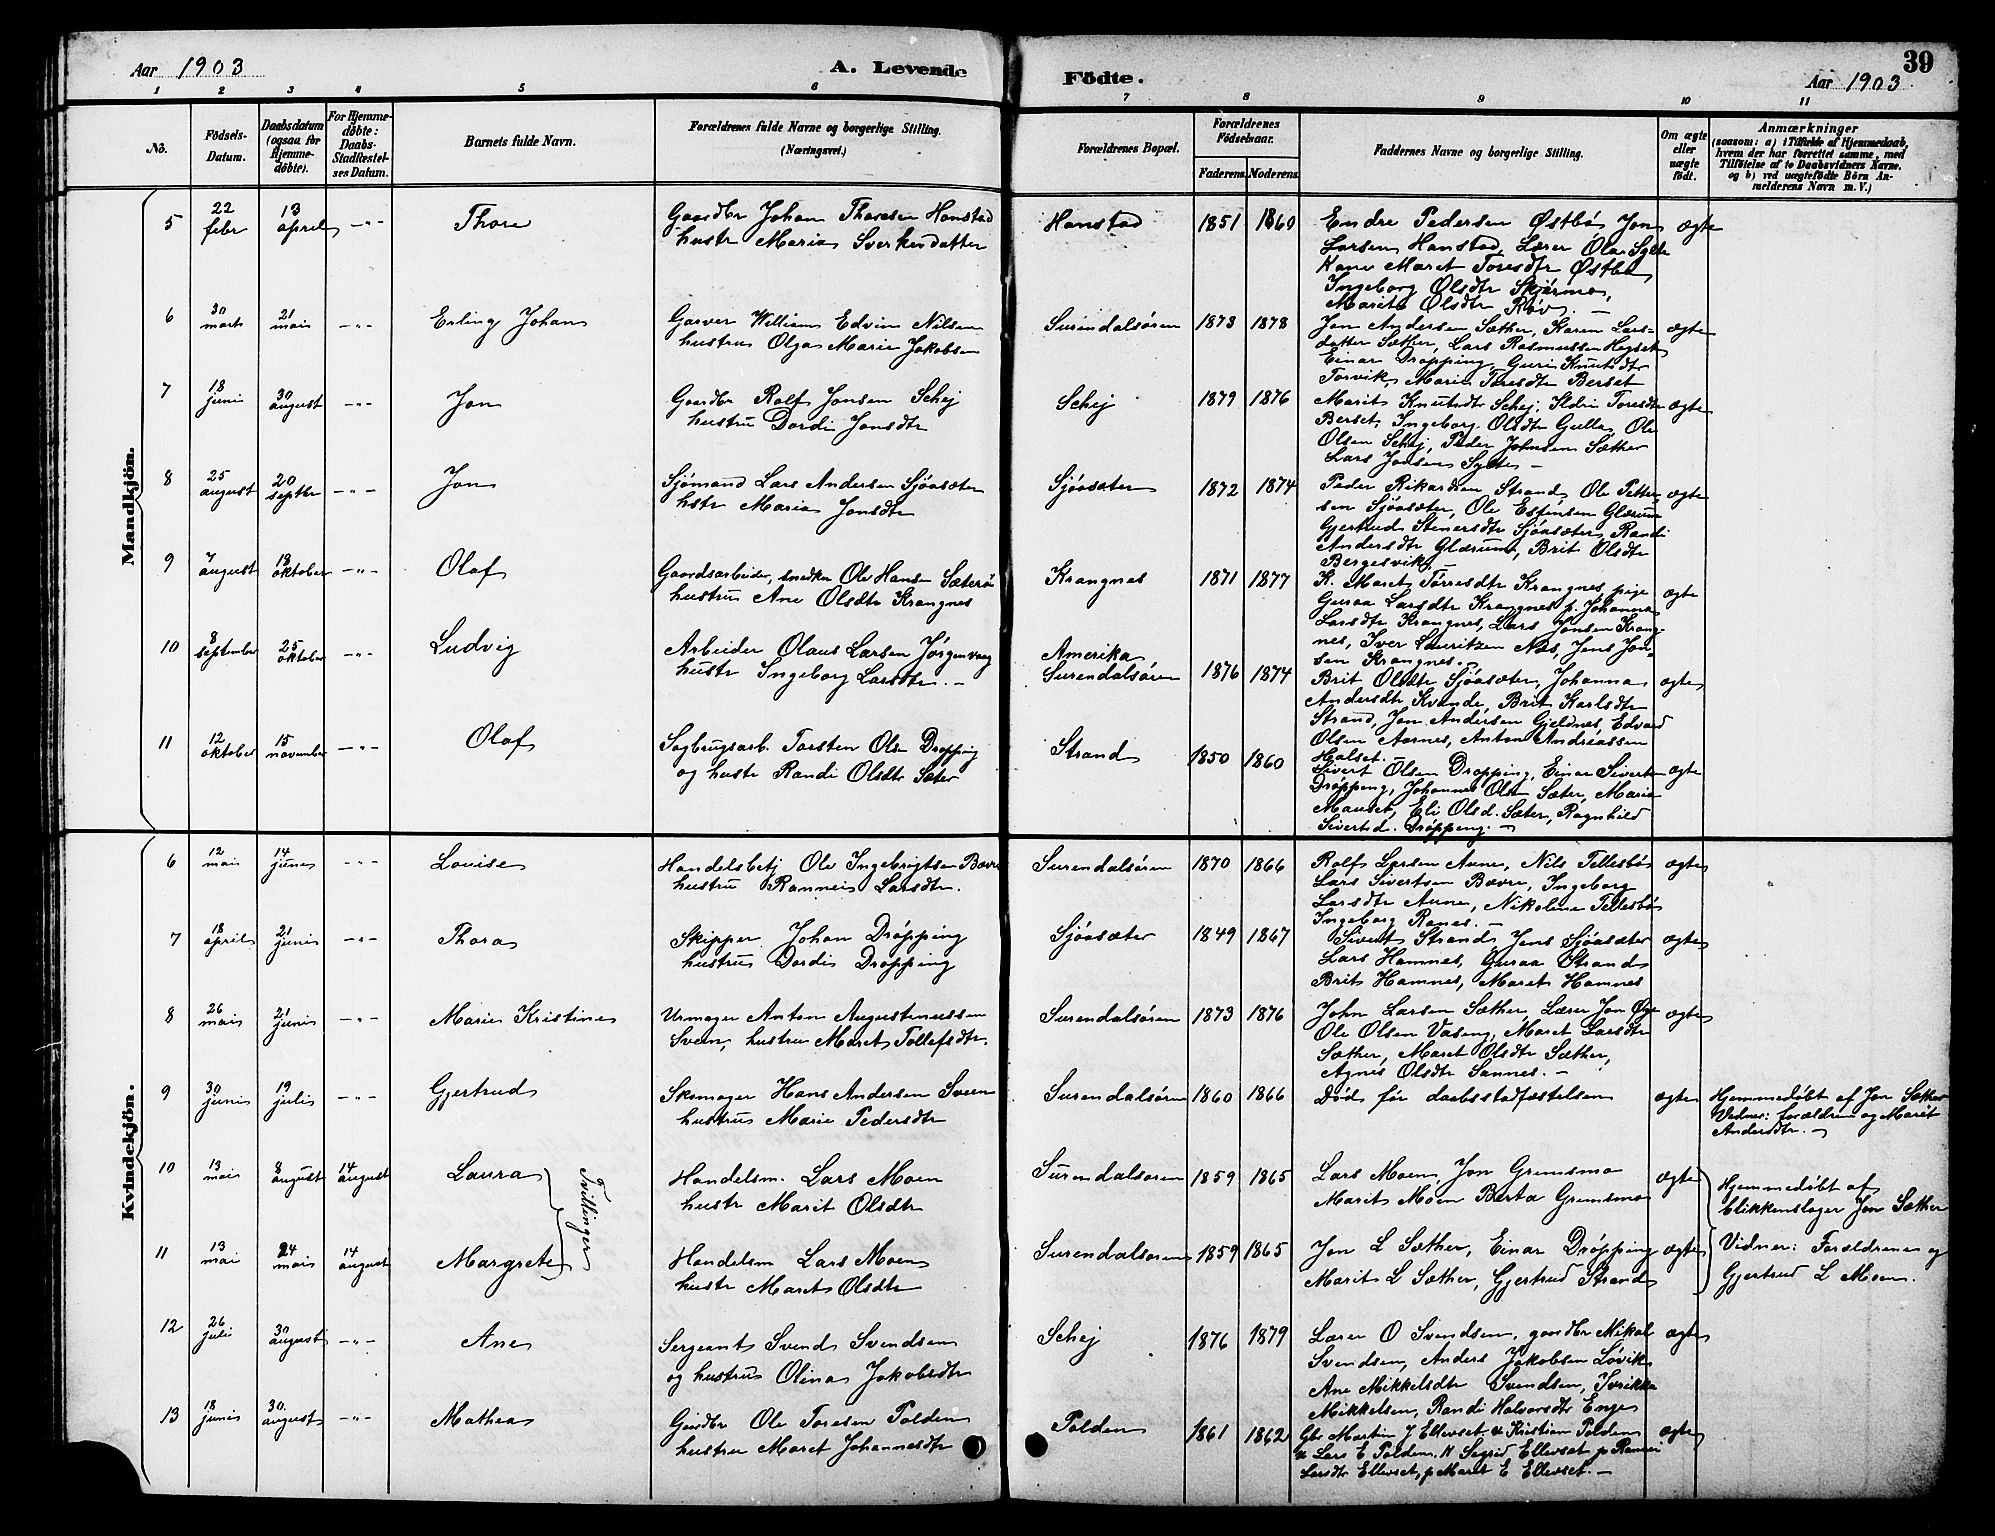 Aar 1903
A. Levende
Födte.
Aar 1903
39
1 2 3 4 5 6 7 8 9 10 11
No.
Födsels-Datum.
Daabsdatum (ogsaa for Hjemmedöbte).
For Hjemmedöbte: Daabs-Stadfæstelses Datum.
Barnets fulde Navn.
Forældrenes fulde Navne og borgerlige Stilling.
(Næringsvei.)
Forældrenes Bopæl.
Forældrenes Födselsaar.
Faderens. Moderens.
Faddernes Navne og borgerlige Stilling.
Om ægte eller uægte födt.
Anmærkninger
(saasom: a) i Tilfælde af Hjemmedaab, hvem der har forrettet samme, med Tilföielse af to Daabsvidners Navne. og b) ved uægtefödte Börn Anmelderens Navn m. V.)
Mandkjön.
5 22 febr 13 april -"- Thore
Gaardbr Johan Thoresen Honstad
hustr Maria Sverkesdatter
Honstad 1851 1860
Endre Pedersen Østbö Jon
Larsen Honstad, Lærer Ola Sylte
Kone Maret Toresdtr Østbö
Ingeborg Olsdtr Skjermo,
Marit Olsdtr Röv. —
ægte
6 30 marts 21 mai -"- Erling Johan
Garver William Edvin Nilsen
hustru Olga Marie Jakobsen
Surendalsören 1873 1878
Jon Andersen Sæther, Karen Lars-
datter Sæther, Lars Rasmussen Hegset
Einar Dröpping, Guri Knutsdtr
Torvik, Marie Toresdtr Berset
ægte
7 18 juni 30 august -"- Jon
Gaardbr Rolf Jonsen Schej
hustru Dordi Jonsdtr
Schej 1879 1876
Marit Knutsdtr Schej, Ildri Toresdtr
Berset, Ingeborg Olsdtr Gulla, Ole
Olsen Schej, Peder Johnsen Sæther
Lars Jonsen Sylte —
ægte
8 25 august 20 septbr -"- Jon
Sjömand Lars Andersen Sjöasæter
hstr Maria Jonsdtr
Sjöasæter 1872 1874
Peder Rikardsen Strand, Ole Petter-
sen Sjöasæter, Ole Espensen Glærum
Gjertrud Stenersdtr Sjöasæter, Randi
Andersdtr Glærum, Brit Olsdtr
Bergesvik. —
ægte
9 7 august 18 oktober -"- Olaf
Gaardsarbeider, snedker Ole Hansen Sæterö
hustru Ane Olsdtr Krangnes
Krangnes 1871 1877
K. Maret Törresdtr Krangnes, pige
Guraa Larsdtr Krangnes p. Johanna
Larsdtr Krangnes, Lars Jonsen Krang-
nes, Iver Lauritzen Næs, Jens Jon-
sen Krangnes. —
ægte
10 8 september 25 oktober -"- Ludvig
Arbeider Olaus Larsen Jörgenvaag
hustr Ingeborg Larsdtr. —
Amerika
Surendalsören 1876 1874
Brit Olsdtr Sjöasæter, Johanna
Andersdtr Kvande, Brit Karlsdtr
Strand, Jon Andersen Gjeldnes, Edvard
Olsen Aarnes, Anton Andreassen
Halset. —
ægte
11 12 oktober 15 november -"- Olaf
Sagbrugsarb. Torsten Olsen Dröpping
og hustr Randi Olsdtr Sæter
Strand 1850 1860
Sivert Olsen Dröpping, Einar Sivertsen
Dröpping, Johannes Olsen Sæter, Maria
Mauset, Eli Olsd. Sæter, Ragnhild
Sivertsd. Dröpping. —
ægte
Kvindekjön.
6 12 mai 14 juni -"- Louise
Handelsbetj Ole Ingebrigtsen Bævre
hustru Rannei Larsdtr.
Surendalsören 1870 1866
Rolf Larsen Aune, Nils Tellesbö
Lars Sivertsen Bævre, Ingeborg
Larsdtr Aune, Nikoline Tellesbö
Ingeborg Ranes. —
ægte
7 18 april 21 juni -"- Thora
Skipper Johan Dröpping
hustru Dordi Dröpping
Sjöasæter 1849 1867
Sivert Strand, Jens Sjöasæter
Lars Hamnes, Guraa Strand
Brit Hamnes, Maret Hamnes
ægte
8 26 mai 21 juni -"- Marie Kristine
Urmager Anton Augustinussen
Sveen, hustru Maret Tollefsdtr.
Surendalsören 1873 1876
John Larsen Sæther, Lærer Jon Øye
Ole Olsen Vaseng, Maret Larsdtr
Sæther, Maret Olsdtr Sæther,
Agnes Olsdtr Sannes. —
ægte
9 30 juni 19 juli -"- Gjertrud
Skomager Hans Andersen Sveen
hustru Marie Pedersdtr
Surendalsören 1860 1866
Död för daabsstadfæstelsen
ægte
Hjemmedöbt af Jon Sæther
Vidner: forældrene og Marit
Andersdtr. —
10 13 mai 8 august 14 august Laura
Tvillinger
Handelsm. Lars Moen
hustr Marit Olsdtr
Surendalsören 1859 1865
Lars Moen, Jon Grimsmo
Marit Moen Berta Grimsmo
ægte
Hjemmedöbt af
blikkenslager Jon Sæther
11 13 mai 24 mai 14 august Margrete
Handelsm Lars Moen
hustr Maret Olsdtr
Surendalsören 1859 1865
Jon L Sæther, Einar Dröpping
Marit L Sæther, Gjertrud Strand
ægte
Vidner: Forældrene og
Gjertrud L Moen.
12 26 juli 30 august -"- Ane
Sergeant Svend Svendsen
og hustru Olina Jakobsdtr
Schej 1876 1879
Lærer O Svendsen, gaardbr Mikal
Svendsen, Anders Jakobsen Lövik
Ane Mikkelsdtr Svendsen,
Mikkelsen, Randi Halvorsdtr Enge
ægte
13 18 juni 30 august -"- Mathea
Gaardbr Ole Toresen Polden
hustru Maret Johannesdtr
Polden 1861 1862
Gbr Martin J Ellevset u Kristian Polden
u Lars E Polden. K Sigrid Ellevset p Rannei
Larsdtr Ellevset, p Maret E Ellevset. —
ægte